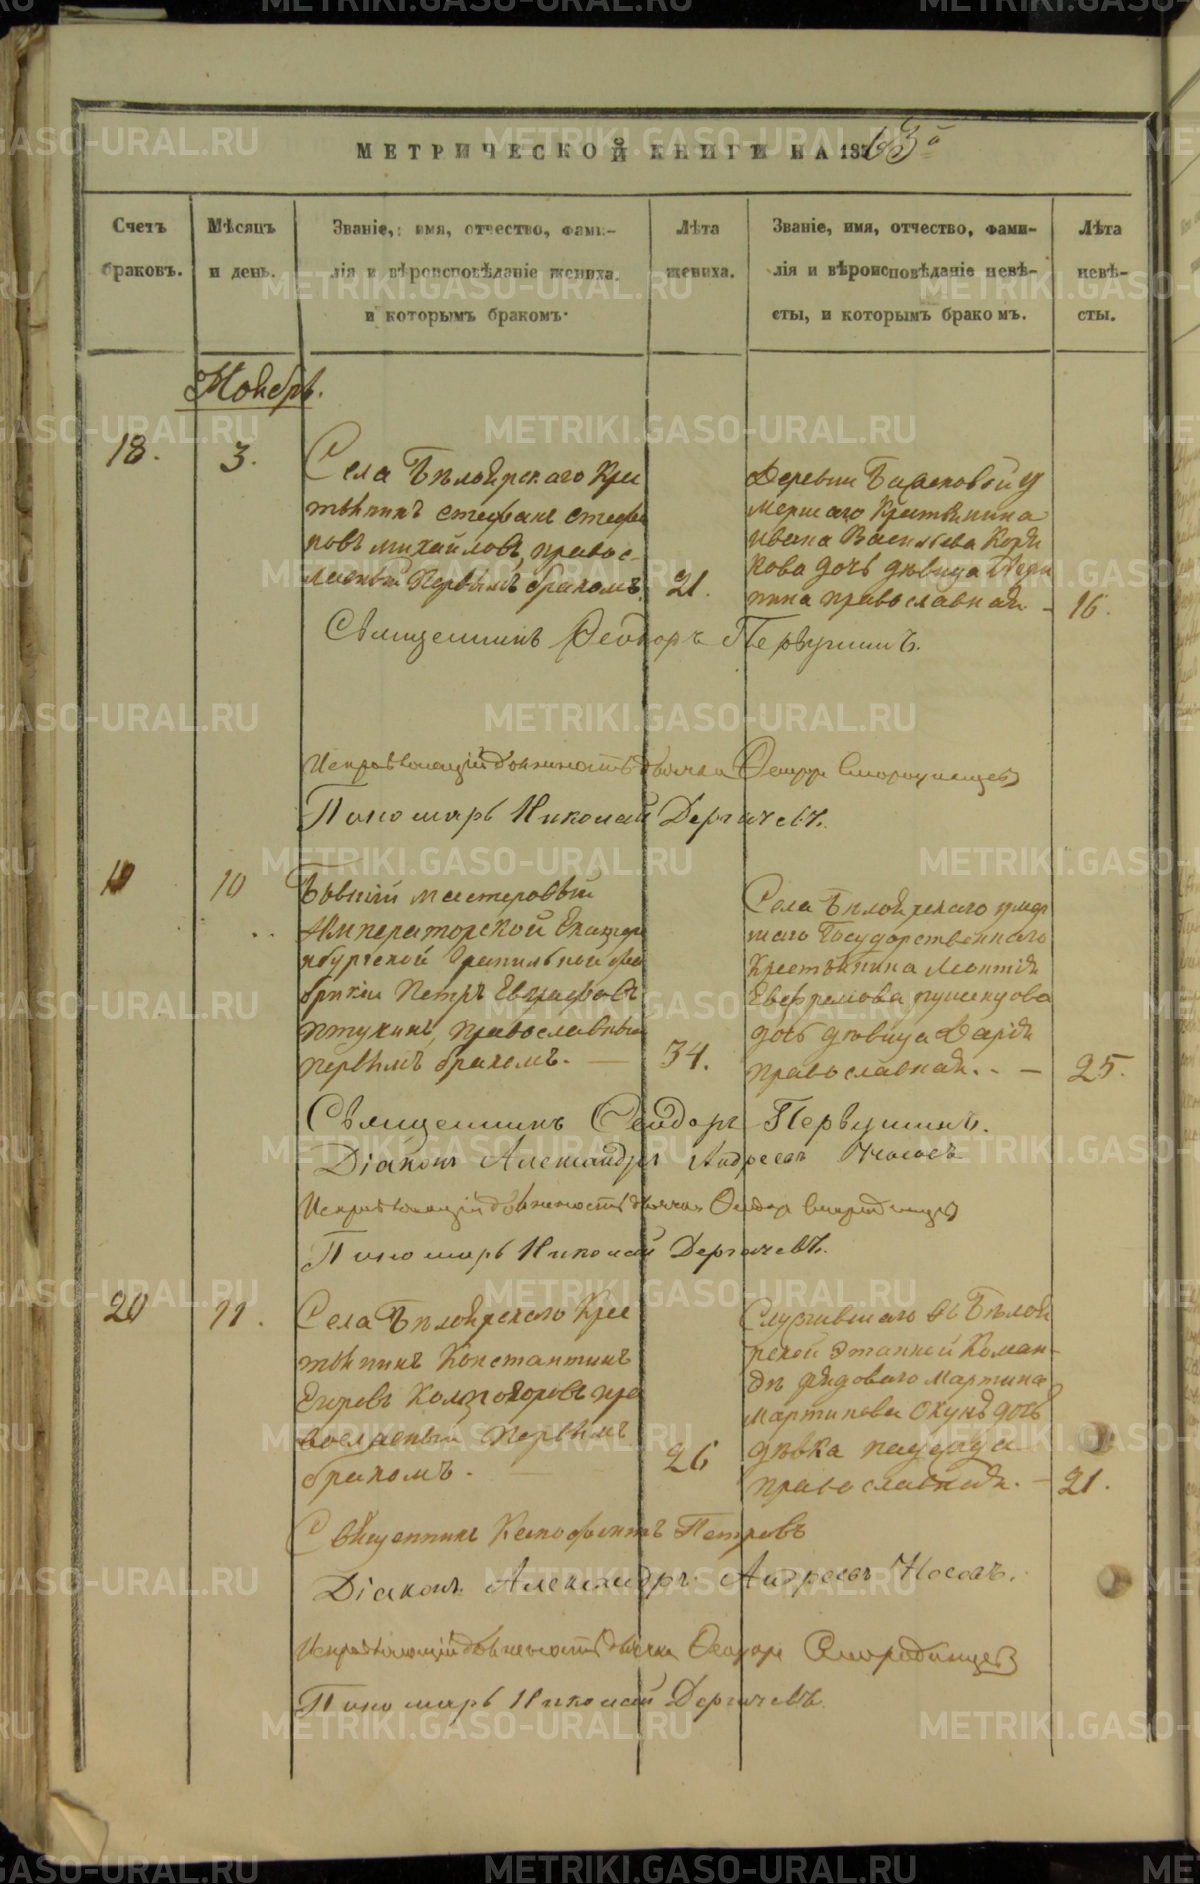 МЕТРИЧЕСКОЙ КНИГИ НА 1863й
Счетъ браковъ.
Мѣсяцъ и день.
Званіе, имя, отчество, фами-
лія и вѣроисповѣданіе жениха.
и которымъ бракомъ.
Лѣта жениха.
Званіе, имя, отчество, фами-
лія и вѣроисповѣданіе невѣ-
сты, и которымъ бракомъ.
Лѣта невѣ-
сты.
Ноябрь.
18.
3.
Села Бѣлоярскаго Крес
тьянинъ Стефанъ Стефа
новъ Михайловъ, правос-
лавный первымъ бракомъ.
21.
Деревни У
мершаго Крестьянина
Ивана Васильева
кова дочь дѣвица
православная –
16.
Священникъ Феодоръ Первушинъ.
Исправляющій должность дьячка Феодоръ Смородинцевъ
Пономарь Николай Дергачевъ.
19
10
Бывшій мастеровый
Императорской Екатери
нбургской Гранильной фа
брики Петръ Евграфовъ
Птухинъ, православный
первымъ бракомъ. –
34.
Села Бѣлоярскаго умер
шаго Государственнаго
Крестьянина Леонтія
Евфремова
дочь дѣвица Дарія
православная. – –
25.
Священникъ Феодоръ Первушинъ.
Діаконъ Александръ Андреевъ Носовъ
Исправляющій должность дьячка Феодоръ Смородинцевъ
Пономарь Николай Дергачевъ.
20
11.
Села Бѣлоярскаго Крес
тьянинъ Константинъ
Егоровъ пра
вославный первымъ
бракомъ.
26
Служившаго въ Бѣлоя
рской Этапной Коман-
дѣ рядоваго Мартина
Мартинова дочь
дѣвка надежда
православная. –
21.
Священникъ Ксенофонтъ Петровъ
Діаконъ Александръ Андреевъ Носовъ.
Исправляющій должность дьячка Феодоръ Смородинцевъ
Пономарь Николай Дергачевъ.
METRIKI.GASO-URAL.RU